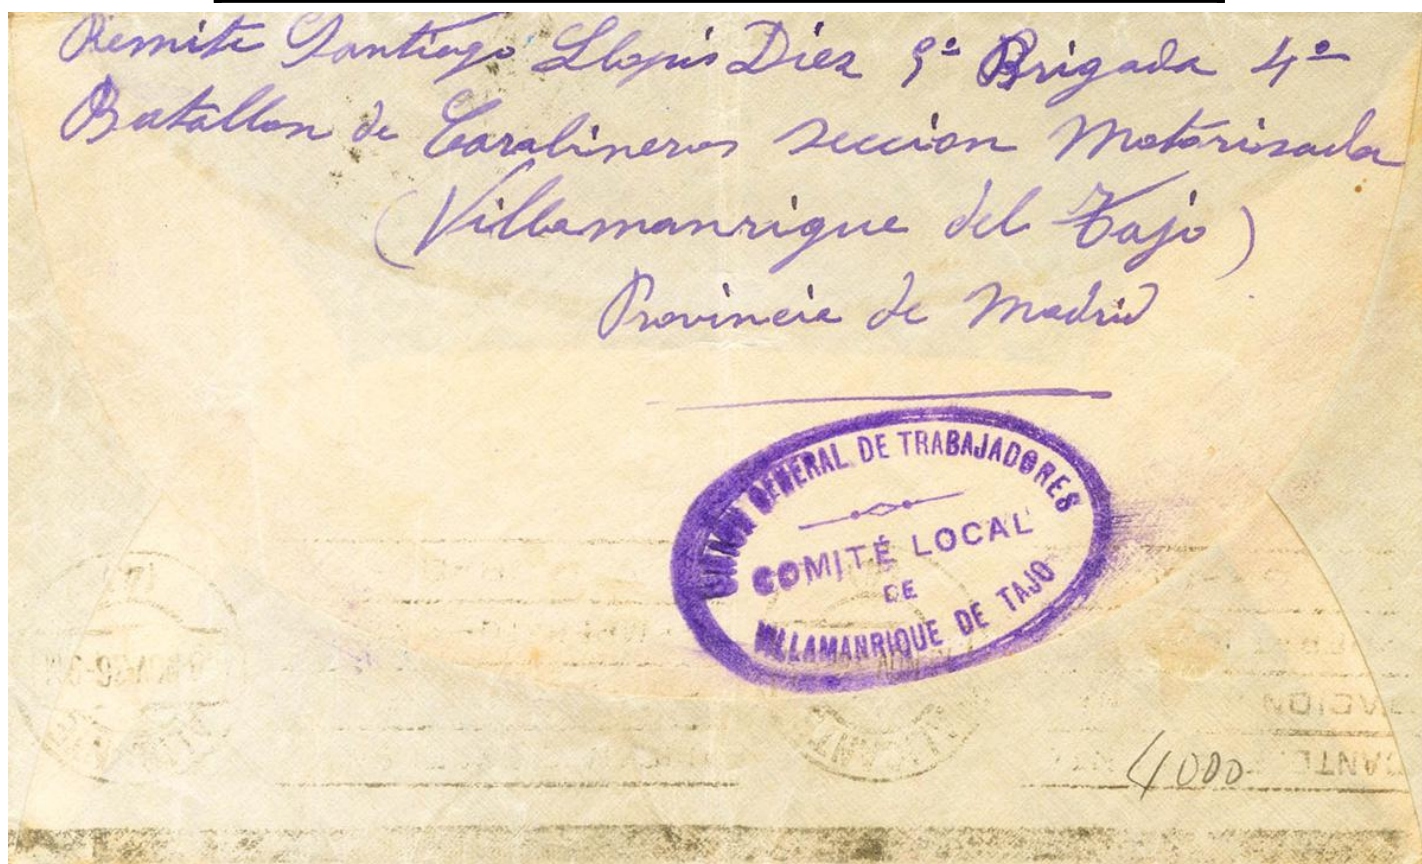 Remite Santiago Llopis Diez 5ª Brigada 4º
Batallon de Carabineros seccion Motorisada
(Villamanrique del Tajo)
Provincia de Madrid
UNION GENERAL DE TRABAJADORES
COMITÉ LOCAL
DE
VILLAMANRIQUE DE TAJO
4000